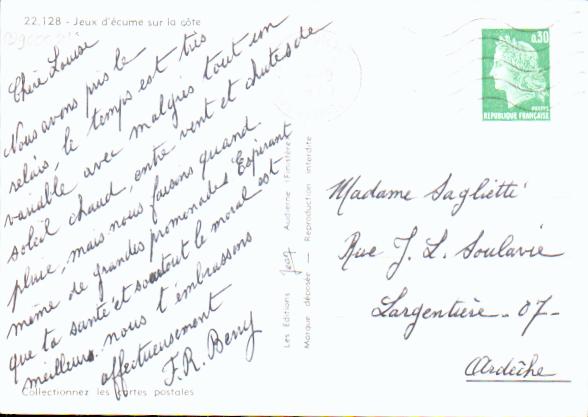 22.128 - Jeux d'écume sur la côte
Chère Louise
Nous avons pris le
relais, le temps est très
variable avec malgrès tout un
soleil chaud, entre vent et chutes de
pluie, mais nous faisons quand
même de grandes promenades Espérant
que ta santé et surtout le moral est
meilleurs. nous t'embrassons
affectueusement
F. R. Berry
Collectionnez les cartes postales
Les Editions Jean Audierne (Finistère)
Marque déposée — Reproduction interdite
0,30
REPUBLIQUE FRANÇAISE
Madame Sagliétti
Rue J. L. Soulavie
Largentière - 07-
Ardèche